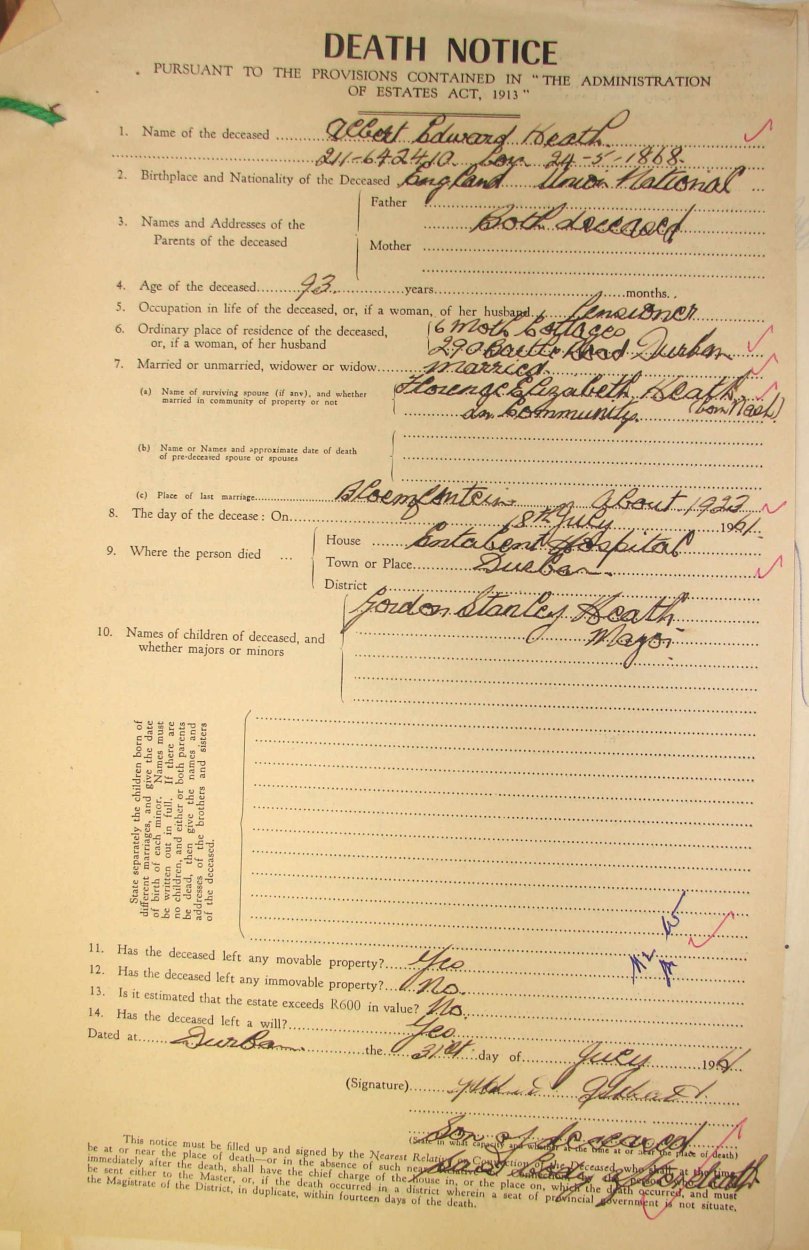 DEATH NOTICE
PURSUANT TO THE PROVISIONS CONTAINED IN "THE ADMINISTRATION
OF ESTATES ACT, 1913"
1. Name of the deceased Albert Edward Heath
211-642410 born 24-5-1868.
2. Birthplace and Nationality of the Deceased England Union National
3. Names and Addresses of the Parents of the deceased
Father
Both deceased
Mother
4. Age of the deceased 93 years months.
5. Occupation in life of the deceased, or, if a woman, of her husband Pensioner
6. Ordinary place of residence of the deceased, 6 Moth Cottages
or, if a woman, of her husband 290 Road Durban
7. Married or unmarried, widower or widow Married.
(a) Name of surviving spouse (if any), and whether Florence Elizabeth Heath
married in community of property or not in Community. (born Nash)
(b) Name or Names and approximate date of death
of pre-deceased spouse or spouses
(c) Place of last marriage Bloemfontein about 1922
8. The day of the decease: On 8th July 1961.
9. Where the person died ... House Entabeni Hospital
Town or Place Durban.
District
10. Names of children of deceased, and whether majors or minors
Gordon Stanley Heath
Major
State separately the children born of
different marriages, and give the date
of birth of each minor. Names must
be written out in full. If there are
no children, and either or both parents
be dead, then give the names and
addresses of the brothers and sisters
of the deceased.
11. Has the deceased left any movable property? Yes
12. Has the deceased left any immovable property? No.
13. Is it estimated that the estate exceeds R600 in value? No.
14. Has the deceased left a will? Yes
Dated at Durban the 31st day of July 1961
(Signature)
Son of deceased
(State in what capacity and whether at the time at or near the place of death)
This notice must be filled up and signed by the Nearest Relative or Connection of the Deceased who shall at the time
be at or near the place of death—or in the absence of such near
immediately after the death, shall have the chief charge of the house in, or the place on, which the death occurred, and must
be sent either to the Master, or, if the death occurred in a district wherein a seat of provincial government is not situate,
the Magistrate of the District, in duplicate, within fourteen days of the death.